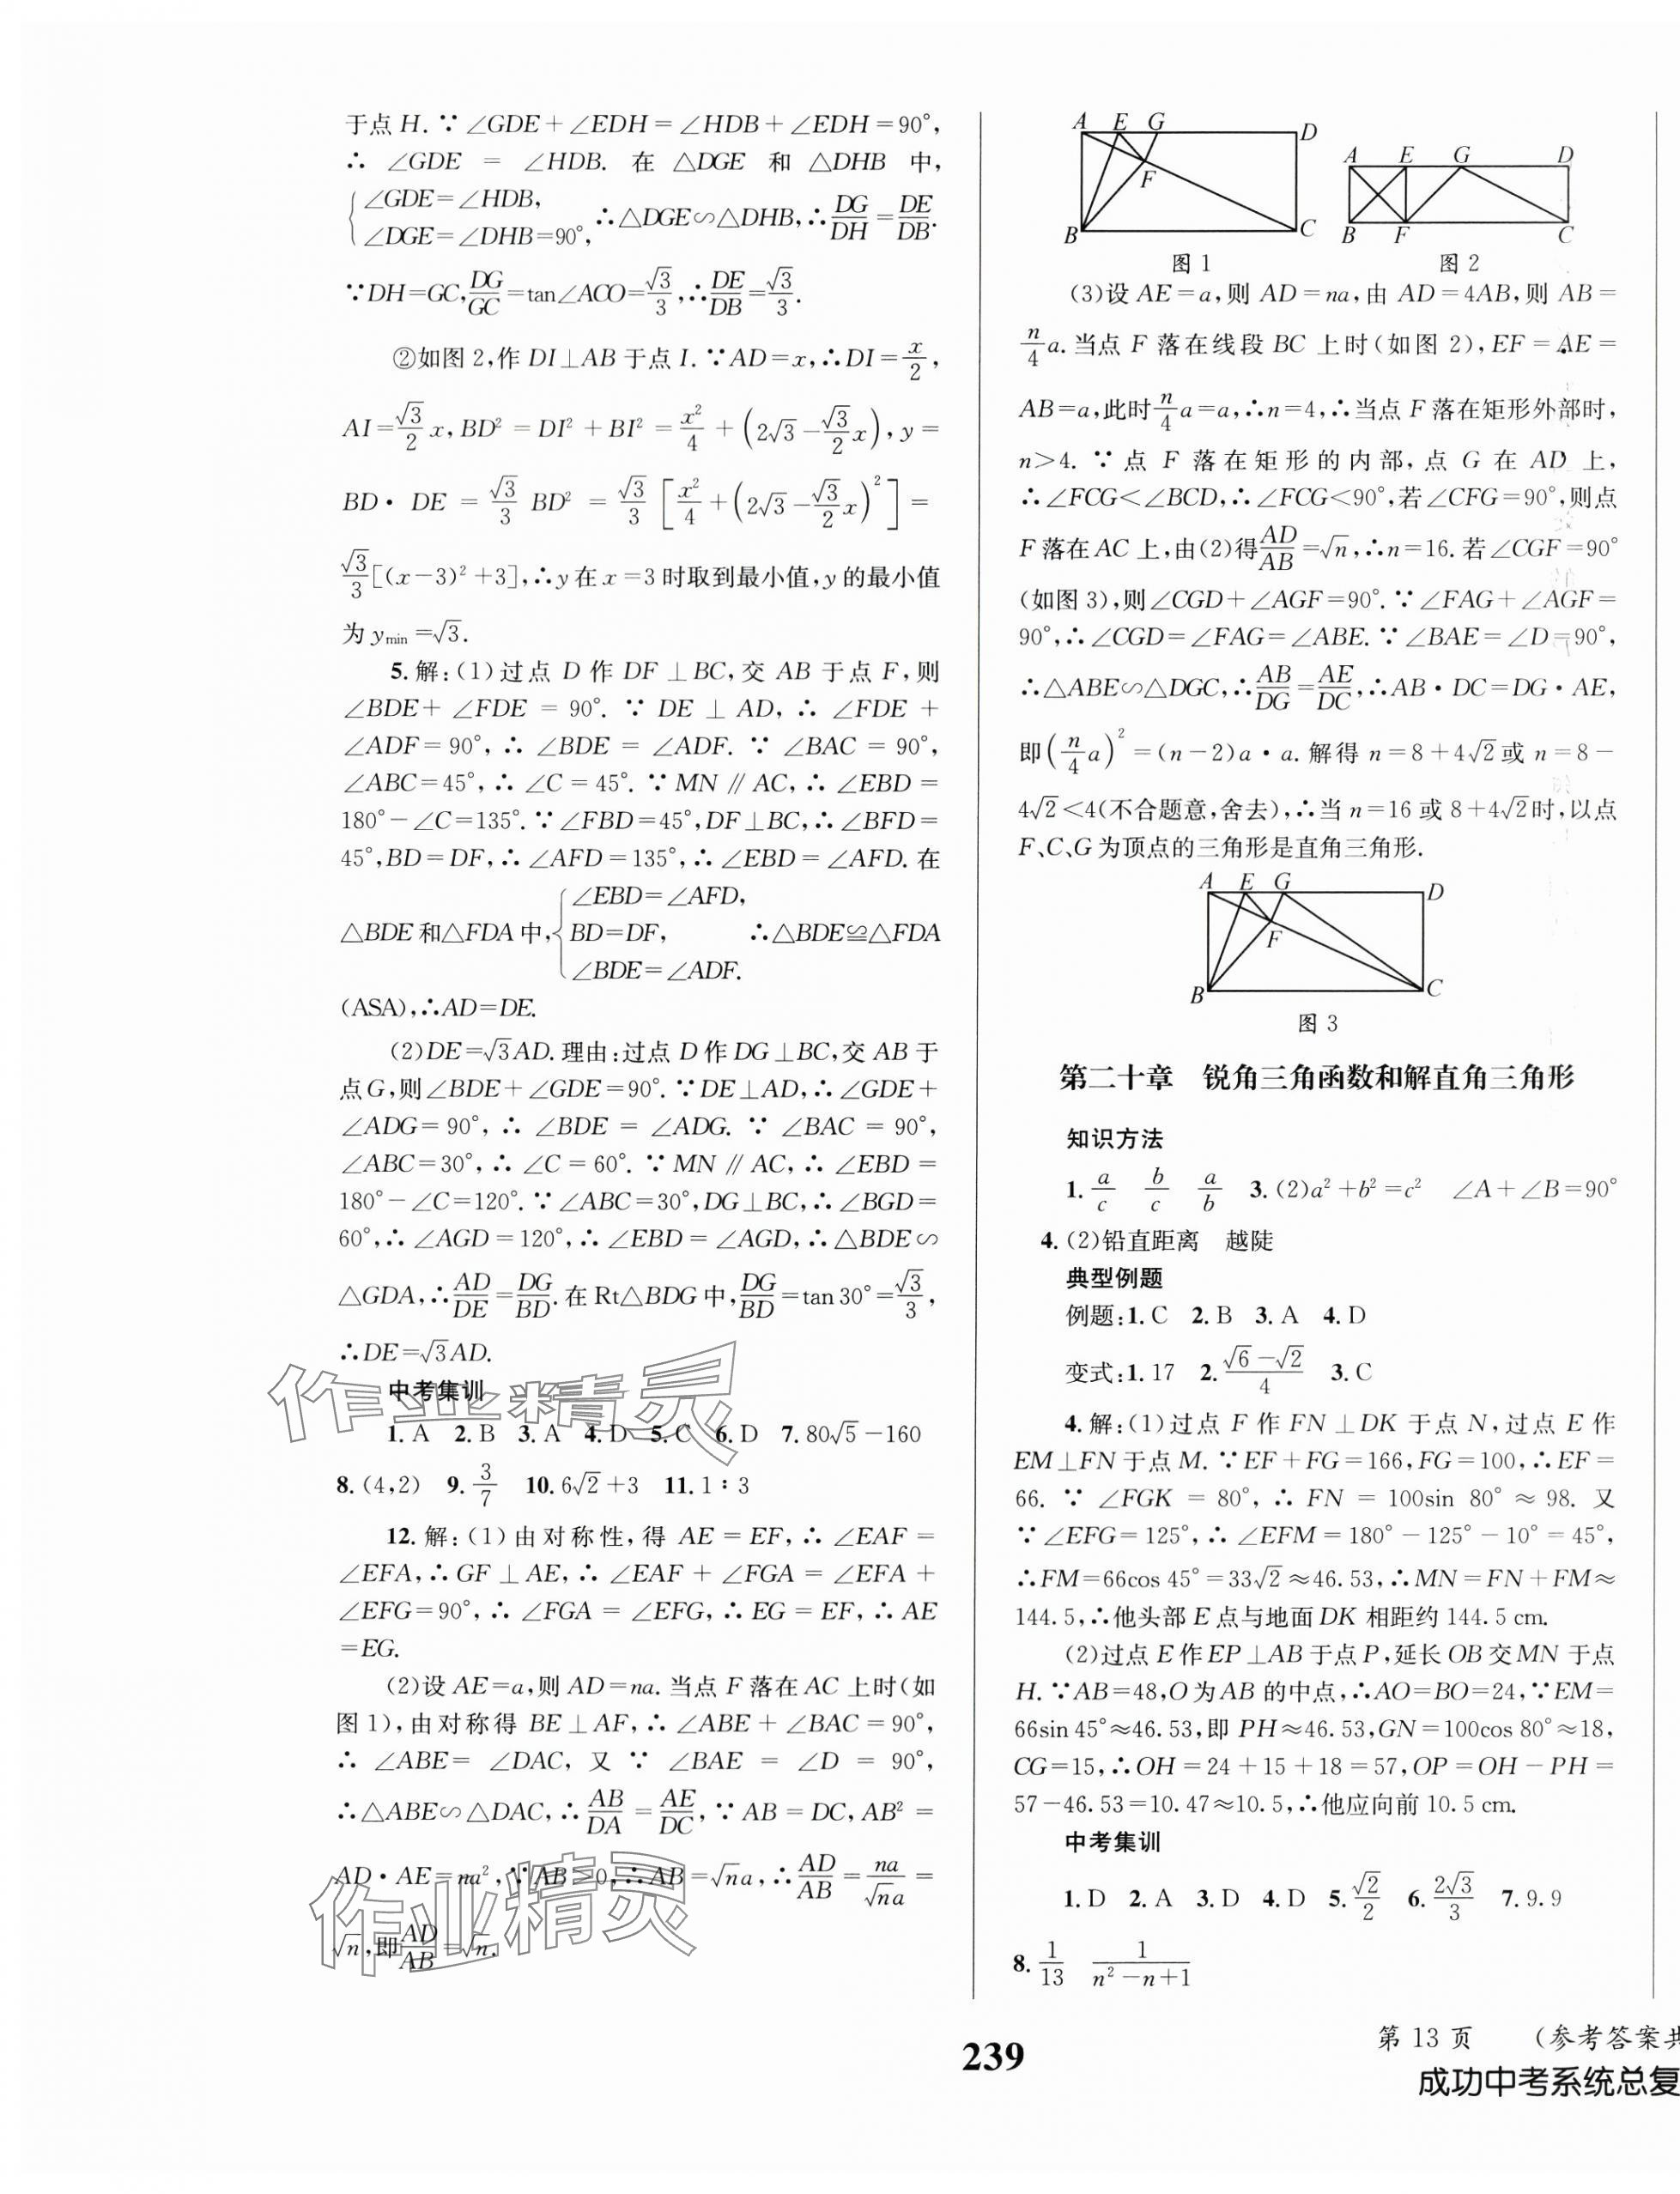 于点 H. ∵ ∠GDE+∠EDH=∠HDB+∠EDH=90°,
∴ ∠GDE = ∠HDB. 在 △DGE 和 △DHB 中,
{∠GDE=∠HDB,
∠DGE=∠DHB=90°, ∴△DGE∽△DHB,∴DG/DH=DE/DB.
∵DH=GC,DG/GC=tan∠ACO=√3/3,∴DE/DB=√3/3.
②如图 2,作 DI⊥AB 于点 I. ∵AD=x,∴DI=x/2,
AI=√3/2 x,BD²=DI²+BI²=x²/4+(2√3-√3/2 x),y=
BD· DE = √3/3 BD² = √3/3[x²/4+(2√3-√3/2 x)²]=
√3/3[(x-3)²+3],∴y 在 x=3 时取到最小值,y 的最小值
为 y_min=√3.
5.解:(1)过点 D 作 DF⊥BC,交 AB 于点 F,则
∠BDE+ ∠FDE = 90°. ∵ DE⊥AD,∴ ∠FDE +
∠ADF=90°,∴ ∠BDE = ∠ADF. ∵ ∠BAC = 90°,
∠ABC=45°,∴ ∠C = 45°. ∵MN∥AC,∴ ∠EBD =
180°-∠C=135°. ∵∠FBD=45°,DF⊥BC,∴∠BFD=
45°,BD=DF,∴∠AFD=135°,∴∠EBD=∠AFD. 在
△BDE 和△FDA 中,{∠EBD=∠AFD,
BD=DF, ∴△BDE≌△FDA
∠BDE=∠ADF.
(ASA),∴AD=DE.
(2)DE=√3AD. 理由:过点 D 作 DG⊥BC,交 AB 于
点 G,则∠BDE+∠GDE=90°. ∵DE⊥AD,∴∠GDE+
∠ADG= 90°,∴ ∠BDE = ∠ADG. ∵ ∠BAC = 90°,
∠ABC=30°,∴ ∠C = 60°. ∵MN∥AC,∴ ∠EBD =
180°-∠C=120°. ∵∠ABC=30°,DG⊥BC,∴∠BGD=
60°,∴∠AGD=120°,∴∠EBD=∠AGD,∴△BDE∽
△GDA,∴AD/DE=DG/BD. 在 Rt△BDG 中,DG/BD=tan 30°=√3/3,
∴DE=√3AD.
中考集训
1. A 2. B 3. A 4. D 5. C 6. D 7. 80√5-160
8. (4,2) 9. 3/7 10. 6√2+3 11. 1∶3
12.解:(1)由对称性,得 AE=EF,∴∠EAF=
∠EFA,∴GF⊥AE,∴ ∠EAF + ∠FGA = ∠EFA +
∠EFG=90°,∴∠FGA=∠EFG,∴EG=EF,∴AE
=EG.
(2)设 AE=a,则 AD=na. 当点 F 落在 AC 上时(如
图 1),由对称得 BE⊥AF,∴∠ABE+∠BAC=90°,
∴ ∠ABE= ∠DAC, 又 ∵ ∠BAE = ∠D = 90°,
∴△ABE∽△DAC,∴AB/DA=AE/DC,∵AB=DC,AB²=
AD·AE=na²,∵AB>0,∴AB=√n a,∴AD/AB=na/√n a=
√n,即AD/AB=√n.
A E G D
F
B C
图 1
A E G D
B F C
图 2
(3)设 AE=a,则 AD=na,由 AD=4AB,则 AB=
n/4 a. 当点 F 落在线段 BC 上时(如图 2),EF=AE=
AB=a,此时n/4 a=a,∴n=4,∴当点 F 落在矩形外部时,
n>4. ∵点 F 落在矩形的内部,点 G 在 AD 上,
∴∠FCG<∠BCD,∴∠FCG<90°,若∠CFG=90°,则点
F 落在 AC 上,由(2)得AD/AB=√n,∴n=16. 若∠CGF=90°
(如图 3),则∠CGD+∠AGF=90°. ∵∠FAG+∠AGF=
90°,∴∠CGD=∠FAG=∠ABE. ∵∠BAE=∠D=90°,
∴△ABE∽△DGC,∴AB/DG=AE/DC,∴AB·DC=DG·AE,
即(n/4 a)²=(n-2)a·a. 解得 n=8+4√2或 n=8-
4√2<4(不合题意,舍去),∴当 n=16 或 8+4√2时,以点
F、C、G 为顶点的三角形是直角三角形.
A E G D
F
B C
图 3
第二十章 锐角三角函数和解直角三角形
知识方法
1. a/c b/c a/b 3. (2)a²+b²=c² ∠A+∠B=90°
4. (2)铅直距离 越陡
典型例题
例题:1. C 2. B 3. A 4. D
变式:1. 17 2. (√6-√2)/4 3. C
4.解:(1)过点 F 作 FN⊥DK 于点 N,过点 E 作
EM⊥FN 于点 M. ∵EF+FG=166,FG=100,∴EF=
66. ∵ ∠FGK = 80°,∴ FN = 100sin 80° ≈ 98. 又
∵∠EFG=125°,∴∠EFM=180°-125°-10°=45°,
∴FM=66cos 45°=33√2≈46.53,∴MN=FN+FM≈
144.5,∴他头部 E 点与地面 DK 相距约 144.5 cm.
(2)过点 E 作 EP⊥AB 于点 P,延长 OB 交 MN 于点
H. ∵AB=48,O 为 AB 的中点,∴AO=BO=24,∵EM=
66sin 45°≈46.53,即 PH≈46.53,GN=100cos 80°≈18,
CG=15,∴OH=24+15+18=57,OP=OH-PH=
57-46.53=10.47≈10.5,∴他应向前 10.5 cm.
中考集训
1. D 2. A 3. D 4. D 5. √2/2 6. 2√3/3 7. 9.9
8. 1/13 1/(n²-n+1)
239
第 13 页 (参考答案共
成功中考系统总复
作业精灵
作业精灵